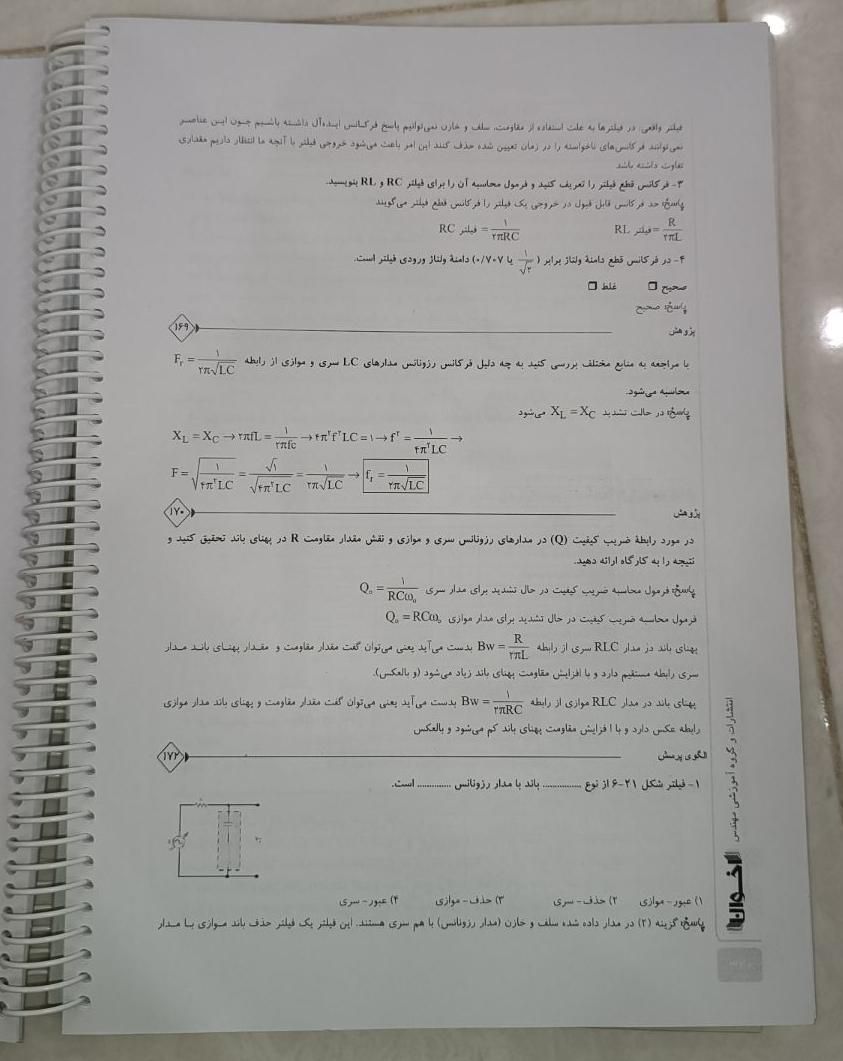 فیلتر واقعی: در فیلترها به علت استفاده از مقاومت، سلف و خازن نمی‌توانیم پاسخ فرکانس ایده‌آل داشته باشیم چون این عناصر
نمی‌توانند فرکانس‌های ناخواسته را در زمان تعیین شده حذف کنند این امر باعث می‌شود خروجی فیلتر با آنچه ما انتظار داریم مقداری
تفاوت داشته باشد
۳- فرکانس قطع فیلتر را تعریف کنید و فرمول محاسبه آن را برای فیلتر RC و RL بنویسید.
پاسخ: حد فرکانس قابل قبول در خروجی یک فیلتر را فرکانس قطع فیلتر می‌گویند
RL فیلتر = R/۲πL RC فیلتر = ۱/۲πRC
۴- در فرکانس قطع دامنهٔ ولتاژ برابر (۱/√۲ یا ۰/۷۰۷) دامنهٔ ولتاژ ورودی فیلتر است.
صحیح ❒ غلط ❒
پاسخ: صحیح
پژوهش ۱۶۹
با مراجعه به منابع مختلف بررسی کنید به چه دلیل فرکانس رزونانس مدارهای LC سری و موازی از رابطه Fr = ۱/۲π√LC
محاسبه می‌شود.
پاسخ: در حالت تشدید XL = XC می‌شود
XL = XC → ۲πfL = ۱/۲πfc → ۴π²f²LC = ۱ → f² = ۱/۴π²LC →
F = √(۱/۴π²LC) = √۱/√(۴π²LC) = ۱/۲π√LC → fr = ۱/۲π√LC
پژوهش ۱۷۰
در مورد رابطهٔ ضریب کیفیت (Q) در مدارهای رزونانس سری و موازی و نقش مقدار مقاومت R در پهنای باند تحقیق کنید و
نتیجه را به کارگاه ارائه دهید.
پاسخ: فرمول محاسبه ضریب کیفیت در حال تشدید برای مدار سری Q₀ = ۱/RCω₀
فرمول محاسبه ضریب کیفیت در حال تشدید برای مدار موازی Q₀ = RCω₀
پهنای باند در مدار RLC سری از رابطه Bw = R/۲πL بدست می‌آید یعنی می‌توان گفت مقدار مقاومت و مقدار پهنای باند مدار
سری رابطه مستقیم دارد و با افزایش مقاومت پهنای باند زیاد می‌شود (و بالعکس).
پهنای باند در مدار RLC موازی از رابطه Bw = ۱/۲πRC بدست می‌آید یعنی می‌توان گفت مقدار مقاومت و پهنای باند مدار موازی
رابطه عکس دارد و با افزایش مقاومت پهنای باند کم می‌شود و بالعکس
الگوی پرسش ۱۷۲
۱- فیلتر شکل ۲۱-۶ از نوع ............... باند با مدار رزونانس ............. است.
۱) عبور- موازی ۲) حذف- سری ۳) حذف- موازی ۴) عبور- سری
پاسخ: گزینه (۲) در مدار داده شده سلف و خازن (مدار رزونانس) با هم سری هستند. این فیلتر یک فیلتر حذف باند موازی با مدار
انتشارات و گروه آموزشی مهندس
اخوان